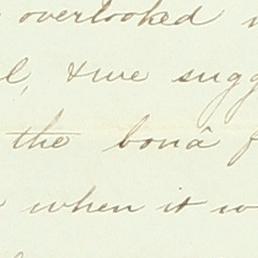 overlooked
& we sugg
the bonâ f
when it w